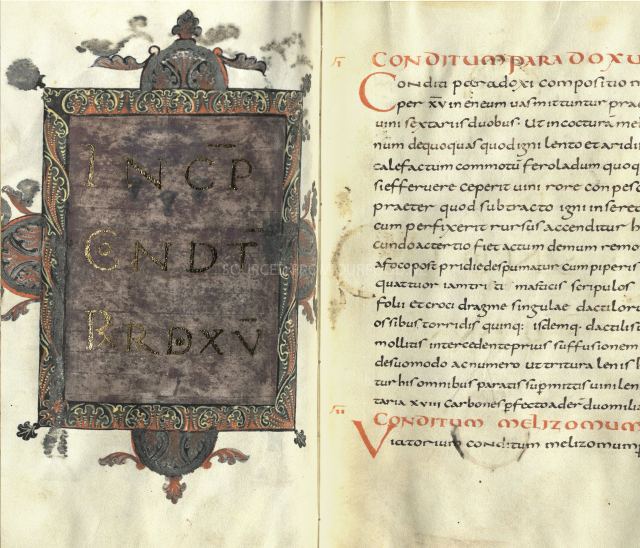 INCP
CNDT
BRDXV
CONDITUM PARADOXU
Conditi paradoxi compositio
per xv in eneum vas mittuntur prae
vini sextariis duobus: Ut in coctura me
num dequoquas quod igni lento et aridi
calefactum commotum ferola dum quoq
si effervere ceperit vini rore conpesc
praeter quod subtracto igni in se red
cum perfixerit rursus accenditur h
cundo ac tertio fiet ac tum demum remo
a foco post pridie despumatur cum piperis
quattuor iam tri ti masticis scripulos
folii et croci dragme singulae dactiloru
ossibus torridis quinq: isdemq: dactilis
mollitis intercedente prius suffusionem
de suo modo ac numero ut tritura lenis h
tur his omnibus paratis supmittis vini len
taria xviii carbones pfecto ader duo mili
II
CONDITUM MELIZOMUM
Viatorium conditum melizomum